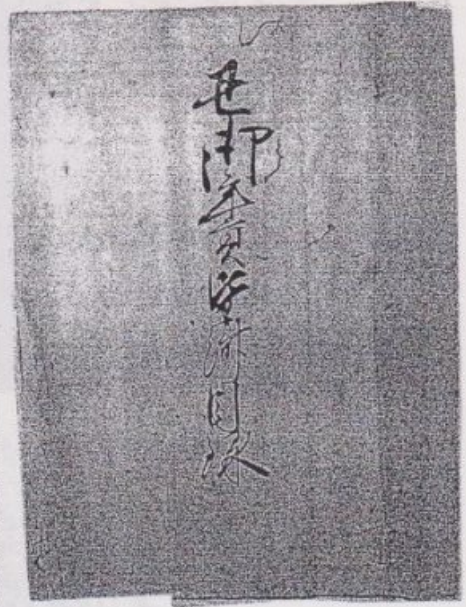 丑御年貢皆済目録